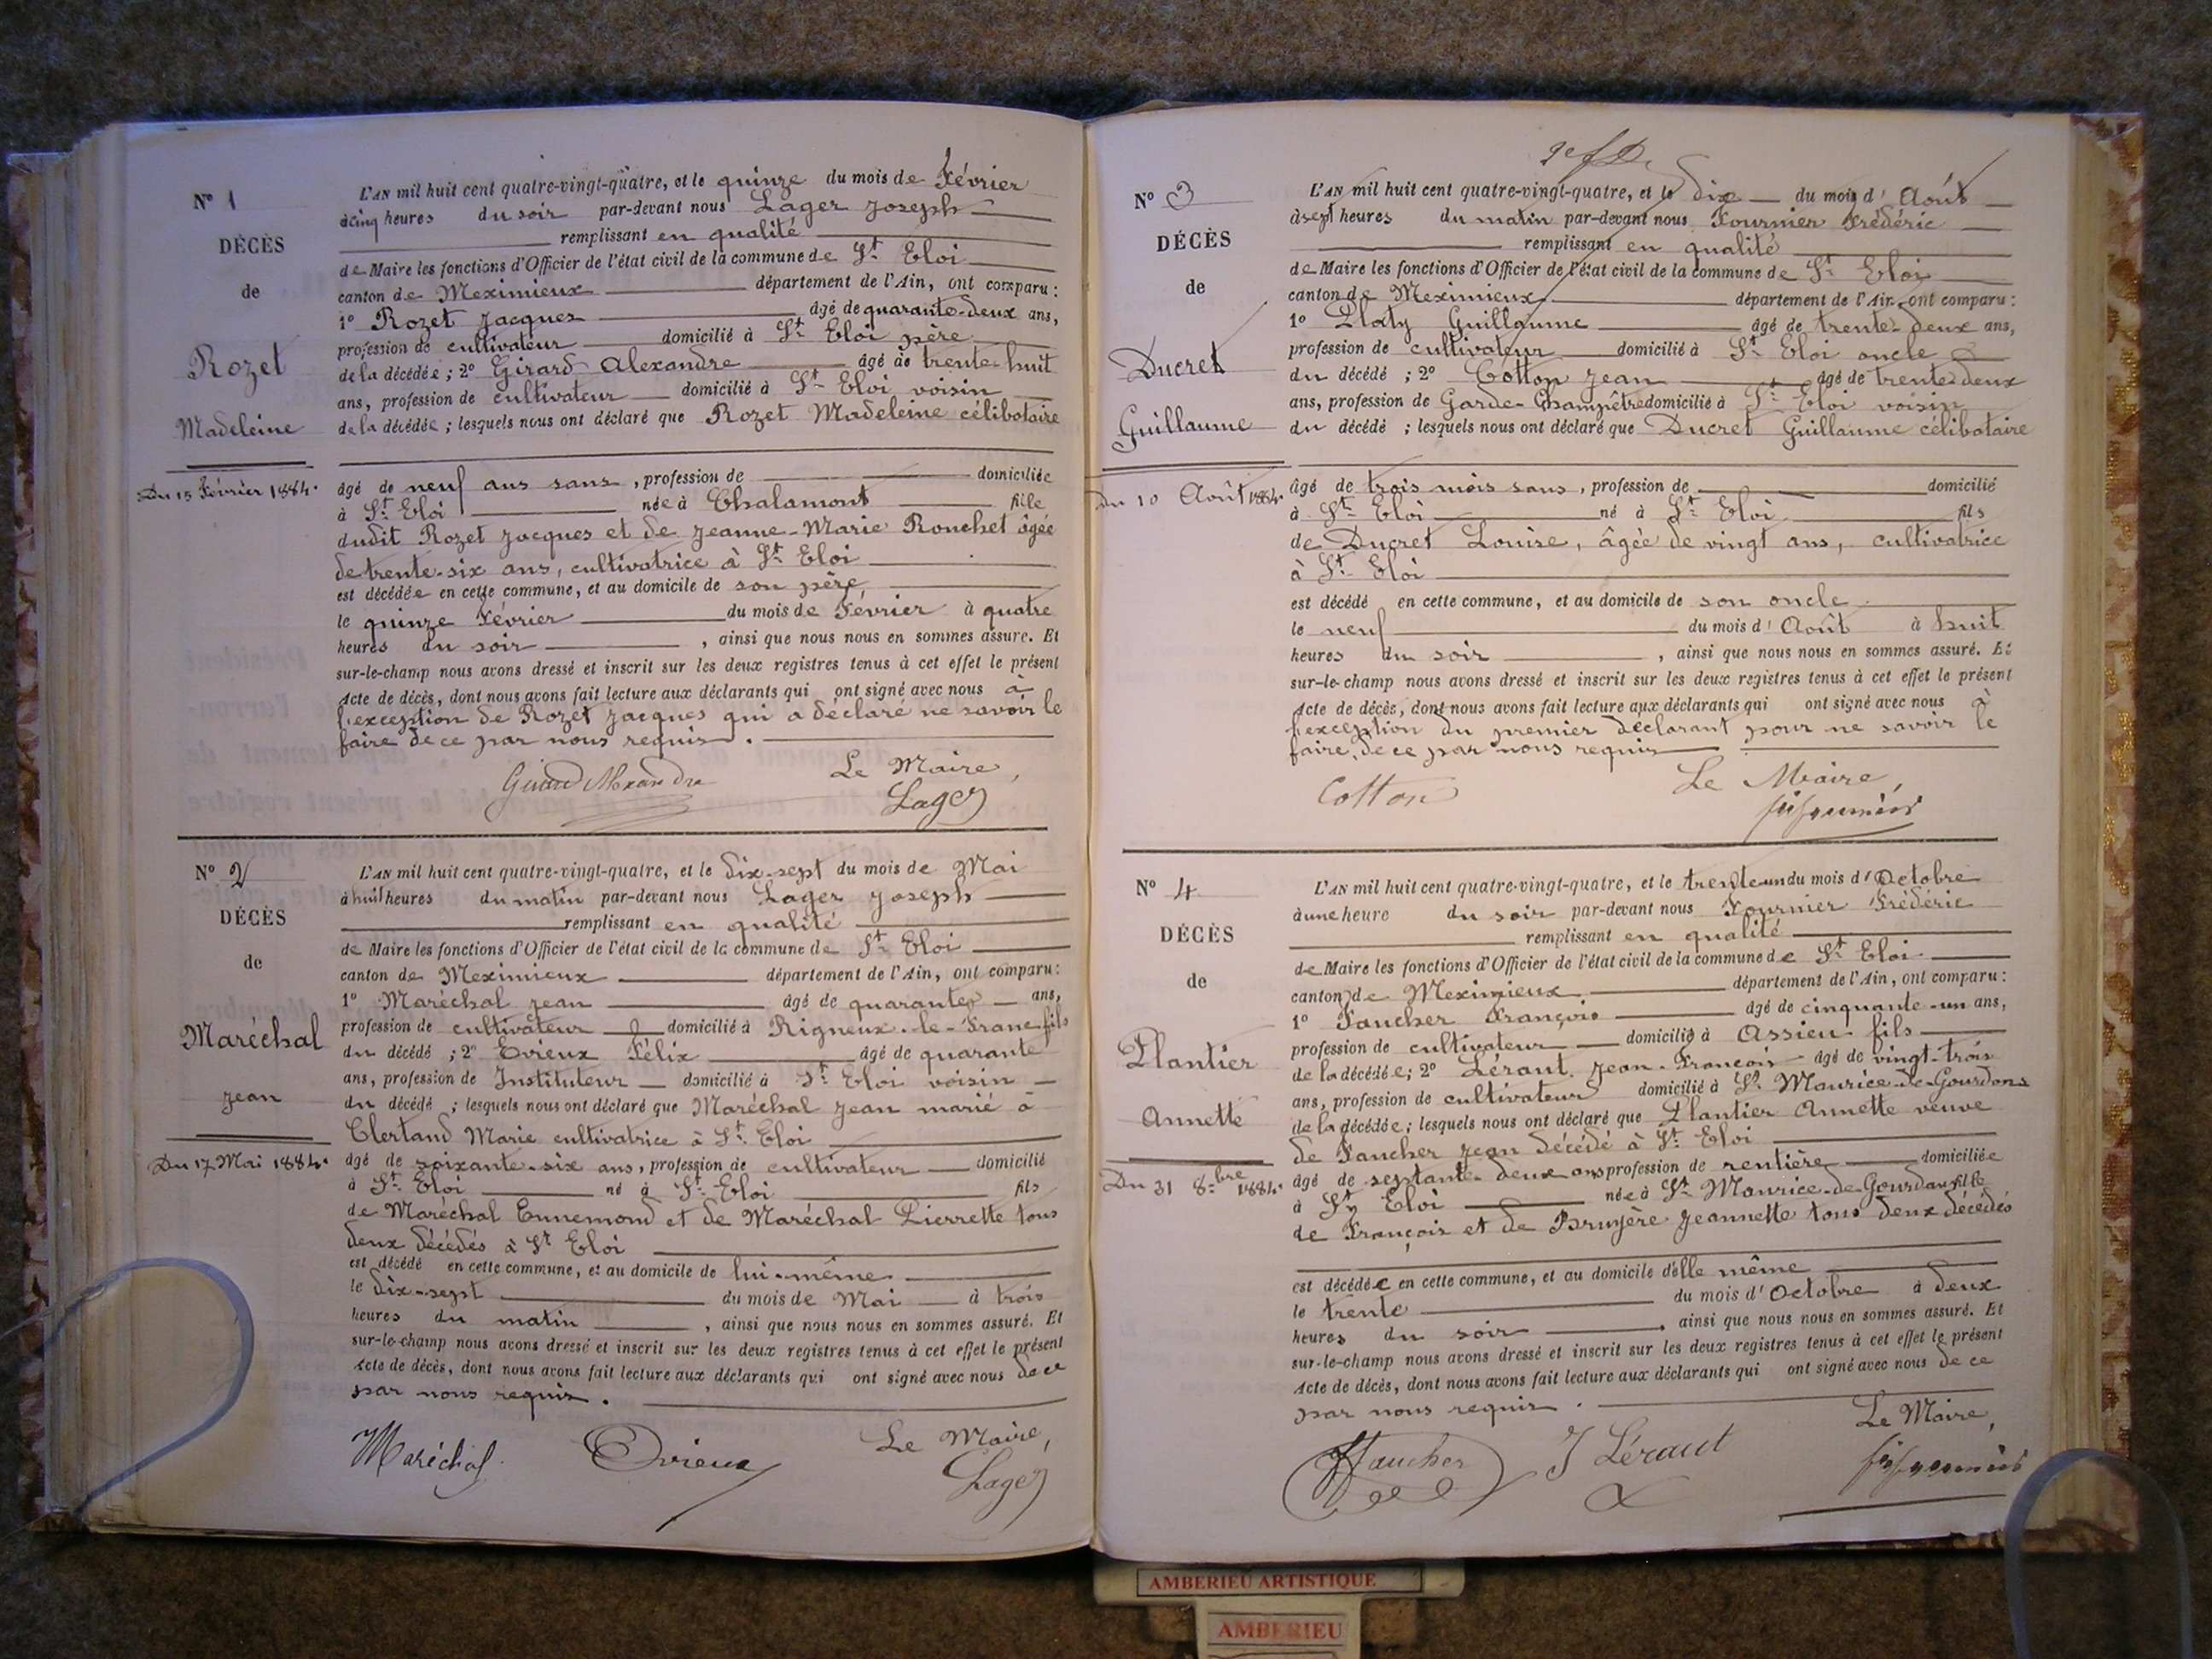 Nº 1
DÉCÈS
de
Rozet
Madeleine
Du 15 Février 1884.
L'AN mil huit cent quatre-vingt-quatre, et le quinze du mois de Février
à cinq heures du soir par-devant nous Lager Joseph
remplissant en qualité
de Maire les fonctions d'Officier de l'état civil de la commune de St. Eloi
canton de Meximieux département de l'Ain, ont comparu :
1º Rozet Jacques âgé de quarante-deux ans,
profession de cultivateur domicilié à St. Eloi père
de la décédée ; 2º Girard Alexandre âgé de trente-huit
ans, profession de cultivateur domicilié à St. Eloi voisin
de la décédée ; lesquels nous ont déclaré que Rozet Madeleine célibataire
âgé de neuf ans sans, profession de domiciliée
à St. Eloi née à Chalamont fille
dudit Rozet Jacques et de Jeanne-Marie Ronchet âgée
de trente-six ans, cultivatrice à St. Eloi
est décédée en cette commune, et au domicile de son père
le quinze Février du mois de Février à quatre
heures du soir , ainsi que nous nous en sommes assuré. Et
sur-le-champ nous avons dressé et inscrit sur les deux registres tenus à cet effet le présent
Acte de décès, dont nous avons fait lecture aux déclarants qui ont signé avec nous à
l'exception de Rozet Jacques qui a déclaré ne savoir le
faire de ce par nous requis.
Girard Alexandre Le Maire,
Lager
Nº 2
DÉCÈS
de
Maréchal
Jean
Du 17 Mai 1884.
L'AN mil huit cent quatre-vingt-quatre, et le dix-sept du mois de Mai
à huit heures du matin par-devant nous Lager Joseph
remplissant en qualité
de Maire les fonctions d'Officier de l'état civil de la commune de St. Eloi
canton de Meximieux département de l'Ain, ont comparu :
1º Maréchal Jean âgé de quarante ans,
profession de cultivateur domicilié à Rigneux-le-Franc fils
du décédé ; 2º Evieux Félix âgé de quarante
ans, profession de Instituteur domicilié à St. Eloi voisin
du décédé ; lesquels nous ont déclaré que Maréchal Jean marié à
Clertand Marie cultivatrice à St. Eloi
âgé de soixante-six ans, profession de cultivateur domicilié
à St. Eloi né à St. Eloi fils
de Maréchal Ennemond et de Maréchal Pierrette tous
deux décédés à St Eloi
est décédé en cette commune, et au domicile de lui-même
le dix-sept du mois de Mai à trois
heures du matin , ainsi que nous nous en sommes assuré. Et
sur-le-champ nous avons dressé et inscrit sur les deux registres tenus à cet effet le présent
Acte de décès, dont nous avons fait lecture aux déclarants qui ont signé avec nous de ce
par nous requis.
Maréchal Evieux Le Maire,
Lager
Nº 3
DÉCÈS
de
Ducret
Guillaume
Du 10 Août 1884.
L'AN mil huit cent quatre-vingt-quatre, et le dix du mois d'Août
à sept heures du matin par-devant nous Fournier Frédéric
remplissant en qualité
de Maire les fonctions d'Officier de l'état civil de la commune de St. Eloi
canton de Meximieux département de l'Ain, ont comparu :
1º Platy Guillaume âgé de trente-deux ans,
profession de cultivateur domicilié à St. Eloi oncle
du décédé ; 2º Cotton Jean âgé de trente-deux
ans, profession de Garde-Champêtre domicilié à St. Eloi voisin
du décédé ; lesquels nous ont déclaré que Ducret Guillaume célibataire
âgé de trois mois sans, profession de domicilié
à St. Eloi né à St. Eloi fils
de Ducret Louise, âgée de vingt ans, cultivatrice
à St. Eloi
est décédé en cette commune, et au domicile de son oncle
le neuf du mois d'Août à huit
heures du soir , ainsi que nous nous en sommes assuré. Et
sur-le-champ nous avons dressé et inscrit sur les deux registres tenus à cet effet le présent
Acte de décès, dont nous avons fait lecture aux déclarants qui ont signé avec nous à
l'exception du premier déclarant pour ne savoir le
faire, de ce par nous requis
Cotton Le Maire,
Nº 4
DÉCÈS
de
Plantier
Annette
Du 31 8bre 1884.
L'AN mil huit cent quatre-vingt-quatre, et le trente-un du mois d'Octobre
à une heure du soir par-devant nous Fournier Frédéric
remplissant en qualité
de Maire les fonctions d'Officier de l'état civil de la commune de St. Eloi
canton de Meximieux département de l'Ain, ont comparu :
1º Faucher François âgé de cinquante-un ans,
profession de cultivateur domicilié à Assieu fils
de la décédée ; 2º Léraut Jean-François âgé de vingt-trois
ans, profession de cultivateur domicilié à St. Maurice-de-Gourdans
de la décédée ; lesquels nous ont déclaré que Plantier Annette veuve
de Faucher Jean décédé à St. Eloi
âgé de septante-deux ans profession de rentière domiciliée
à St. Eloi née à St. Maurice-de-Gourdans fille
de François et de Bruyère Jeannette tous deux décédés
est décédée en cette commune, et au domicile d'elle même
le trente du mois d'Octobre à deux
heures du soir , ainsi que nous nous en sommes assuré. Et
sur-le-champ nous avons dressé et inscrit sur les deux registres tenus à cet effet le présent
Acte de décès, dont nous avons fait lecture aux déclarants qui ont signé avec nous de ce
par nous requis.
Faucher J Léraut Le Maire,
AMBERIEU ARTISTIQUE
AMBERIEU